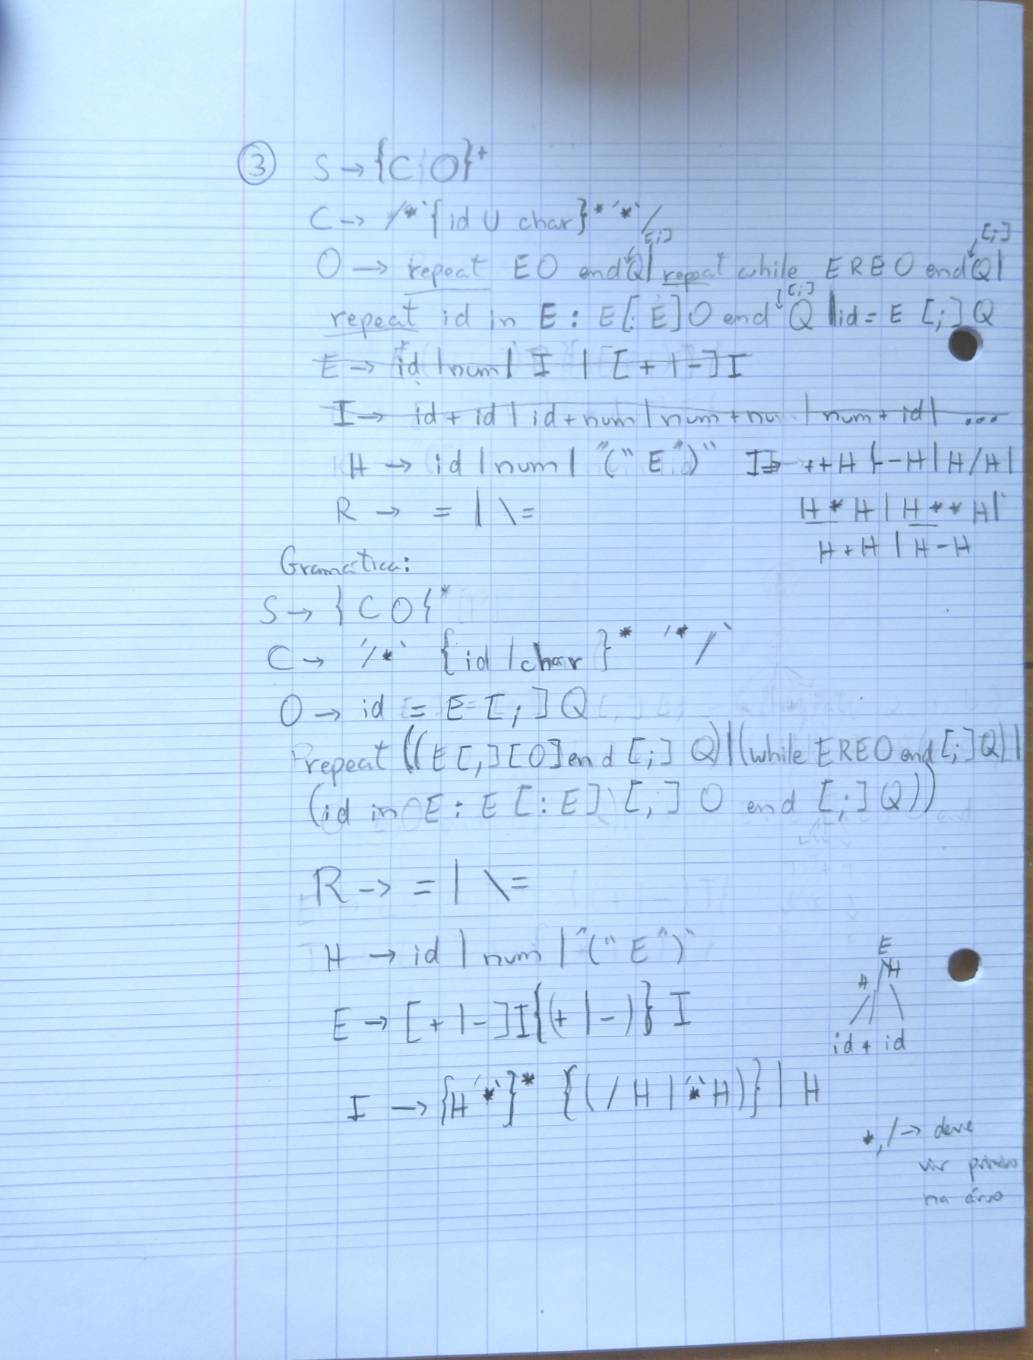 ③ S → {C|O}⁺
C → '/*' {id U char}* '*'/
[;] [;]
O → repeat EO end Q | repeat while EREO end Q |
[;]
repeat id in E : E[: E] O end Q | id = E [;] Q
E → id | num | I | [+|-] I
I → id + id | id + num | num + nu | num + id | ...
H → id | num | "(" E ")" I → ++H | -H | H/H |
R → = | \= H * H | H ** H |
H + H | H - H
Gramática:
S → { C O }*
C → '/*' {id | char}* '*/'
O → id = E [;] Q
repeat ((E [,] [O] end [;] Q) | (while EREO end [;] Q) |
(id in E : E [: E] [,] O end [;] Q))
R → = | \=
H → id | num | "(" E ")"
E → [+|-] I {(+|-)} I
I → {H '*'}* {(/ H | '*' H)} | H
E
H H
id + id
*, / → deve
vir primeiro
na árvo